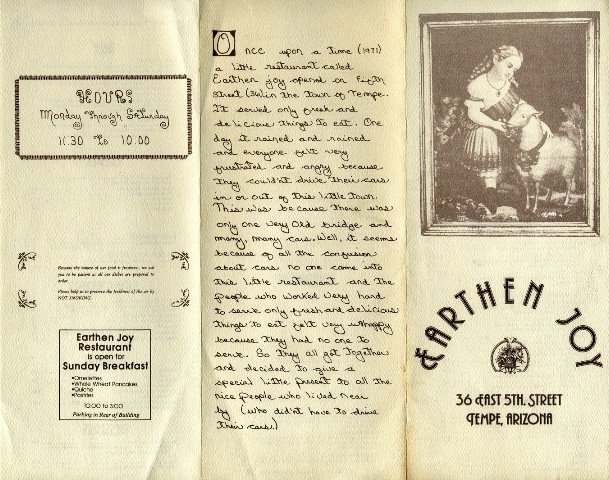 HOURS
Monday Through Saturday
11.30 To 10.00
Because the nature of our food is freshness, we ask
you to be patient as all our dishes are prepared to
order.
Please help us to preserve the freshness of the air by
NOT SMOKING.
Earthen Joy
Restaurant
is open for
Sunday Breakfast
•Omelettes
•Whole Wheat Pancakes
•Quiche
•Pastries
10:00 to 3:00
Parking in Rear of Building
Once upon a time (1971)
a little restaurant called
Earthen Joy opened on Fifth
Street (36) in the town of Tempe.
It served only fresh and
delicious things to eat. One
day it rained and rained
and everyone felt very
frustrated and angry because
they couldn't drive their cars
in or out of this little town.
This was because there was
only one very old bridge and
many, many cars. Well, it seems
because of all the confusion
about cars no one came into
this little restaurant and the
people who worked very hard
to serve only fresh and delicious
things to eat felt very unhappy
because they had no one to
serve. So they all got together
and decided to give a
special little present to all the
nice people who lived near
by (who didn't have to drive
their cars.)
EARTHEN JOY
36 EAST 5TH. STREET
TEMPE, ARIZONA